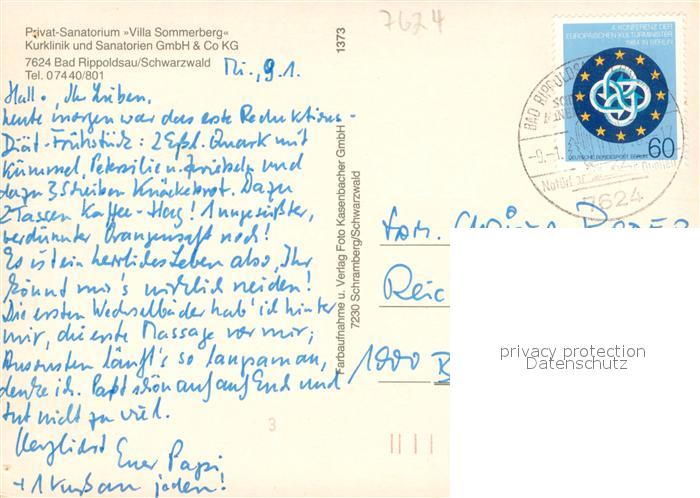 Privat-Sanatorium »Villa Sommerberg«
Kurklinik und Sanatorien GmbH & Co KG
7624 Bad Rippoldsau/Schwarzwald
Tel. 07440/801
Mi., 9.1.
Hallo, Ihr Lieben,
heute morgen war das erste Reduktions-
Diät-Frühstück: 2 Eßl. Quark mit
Kümmel, Petersilie u. Zwiebeln und
dazu 3 Scheiben Knäckebrot. Dazu
2 Tassen Kaffee-Hag! 1 ungesüßter,
verdünnter Orangensaft noch!
Es ist ein herrliches Leben also, Ihr
könnt mir's wirklich neiden!
Die ersten Wechselbäder hab' ich hinter
mir, die erste Massage vor mir;
Ansonsten läuft's so langsam an,
denke ich. Paßt schön auf auf Euch und
tut nicht zu viel.
Herzlichst Euer Papi
+ 1 Kuß an jeden!
1373
Farbaufnahme u. Verlag Foto Kasenbacher GmbH
7230 Schramberg/Schwarzwald
7624
4. KONFERENZ DER
EUROPÄISCHEN KULTURMINISTER
1984 IN BERLIN
DEUTSCHE BUNDESPOST BERLIN
60
BAD RIPPOLDSAU
-9.-1.
7624
Fam.
Reic
1000 B
privacy protection
Datenschutz
3